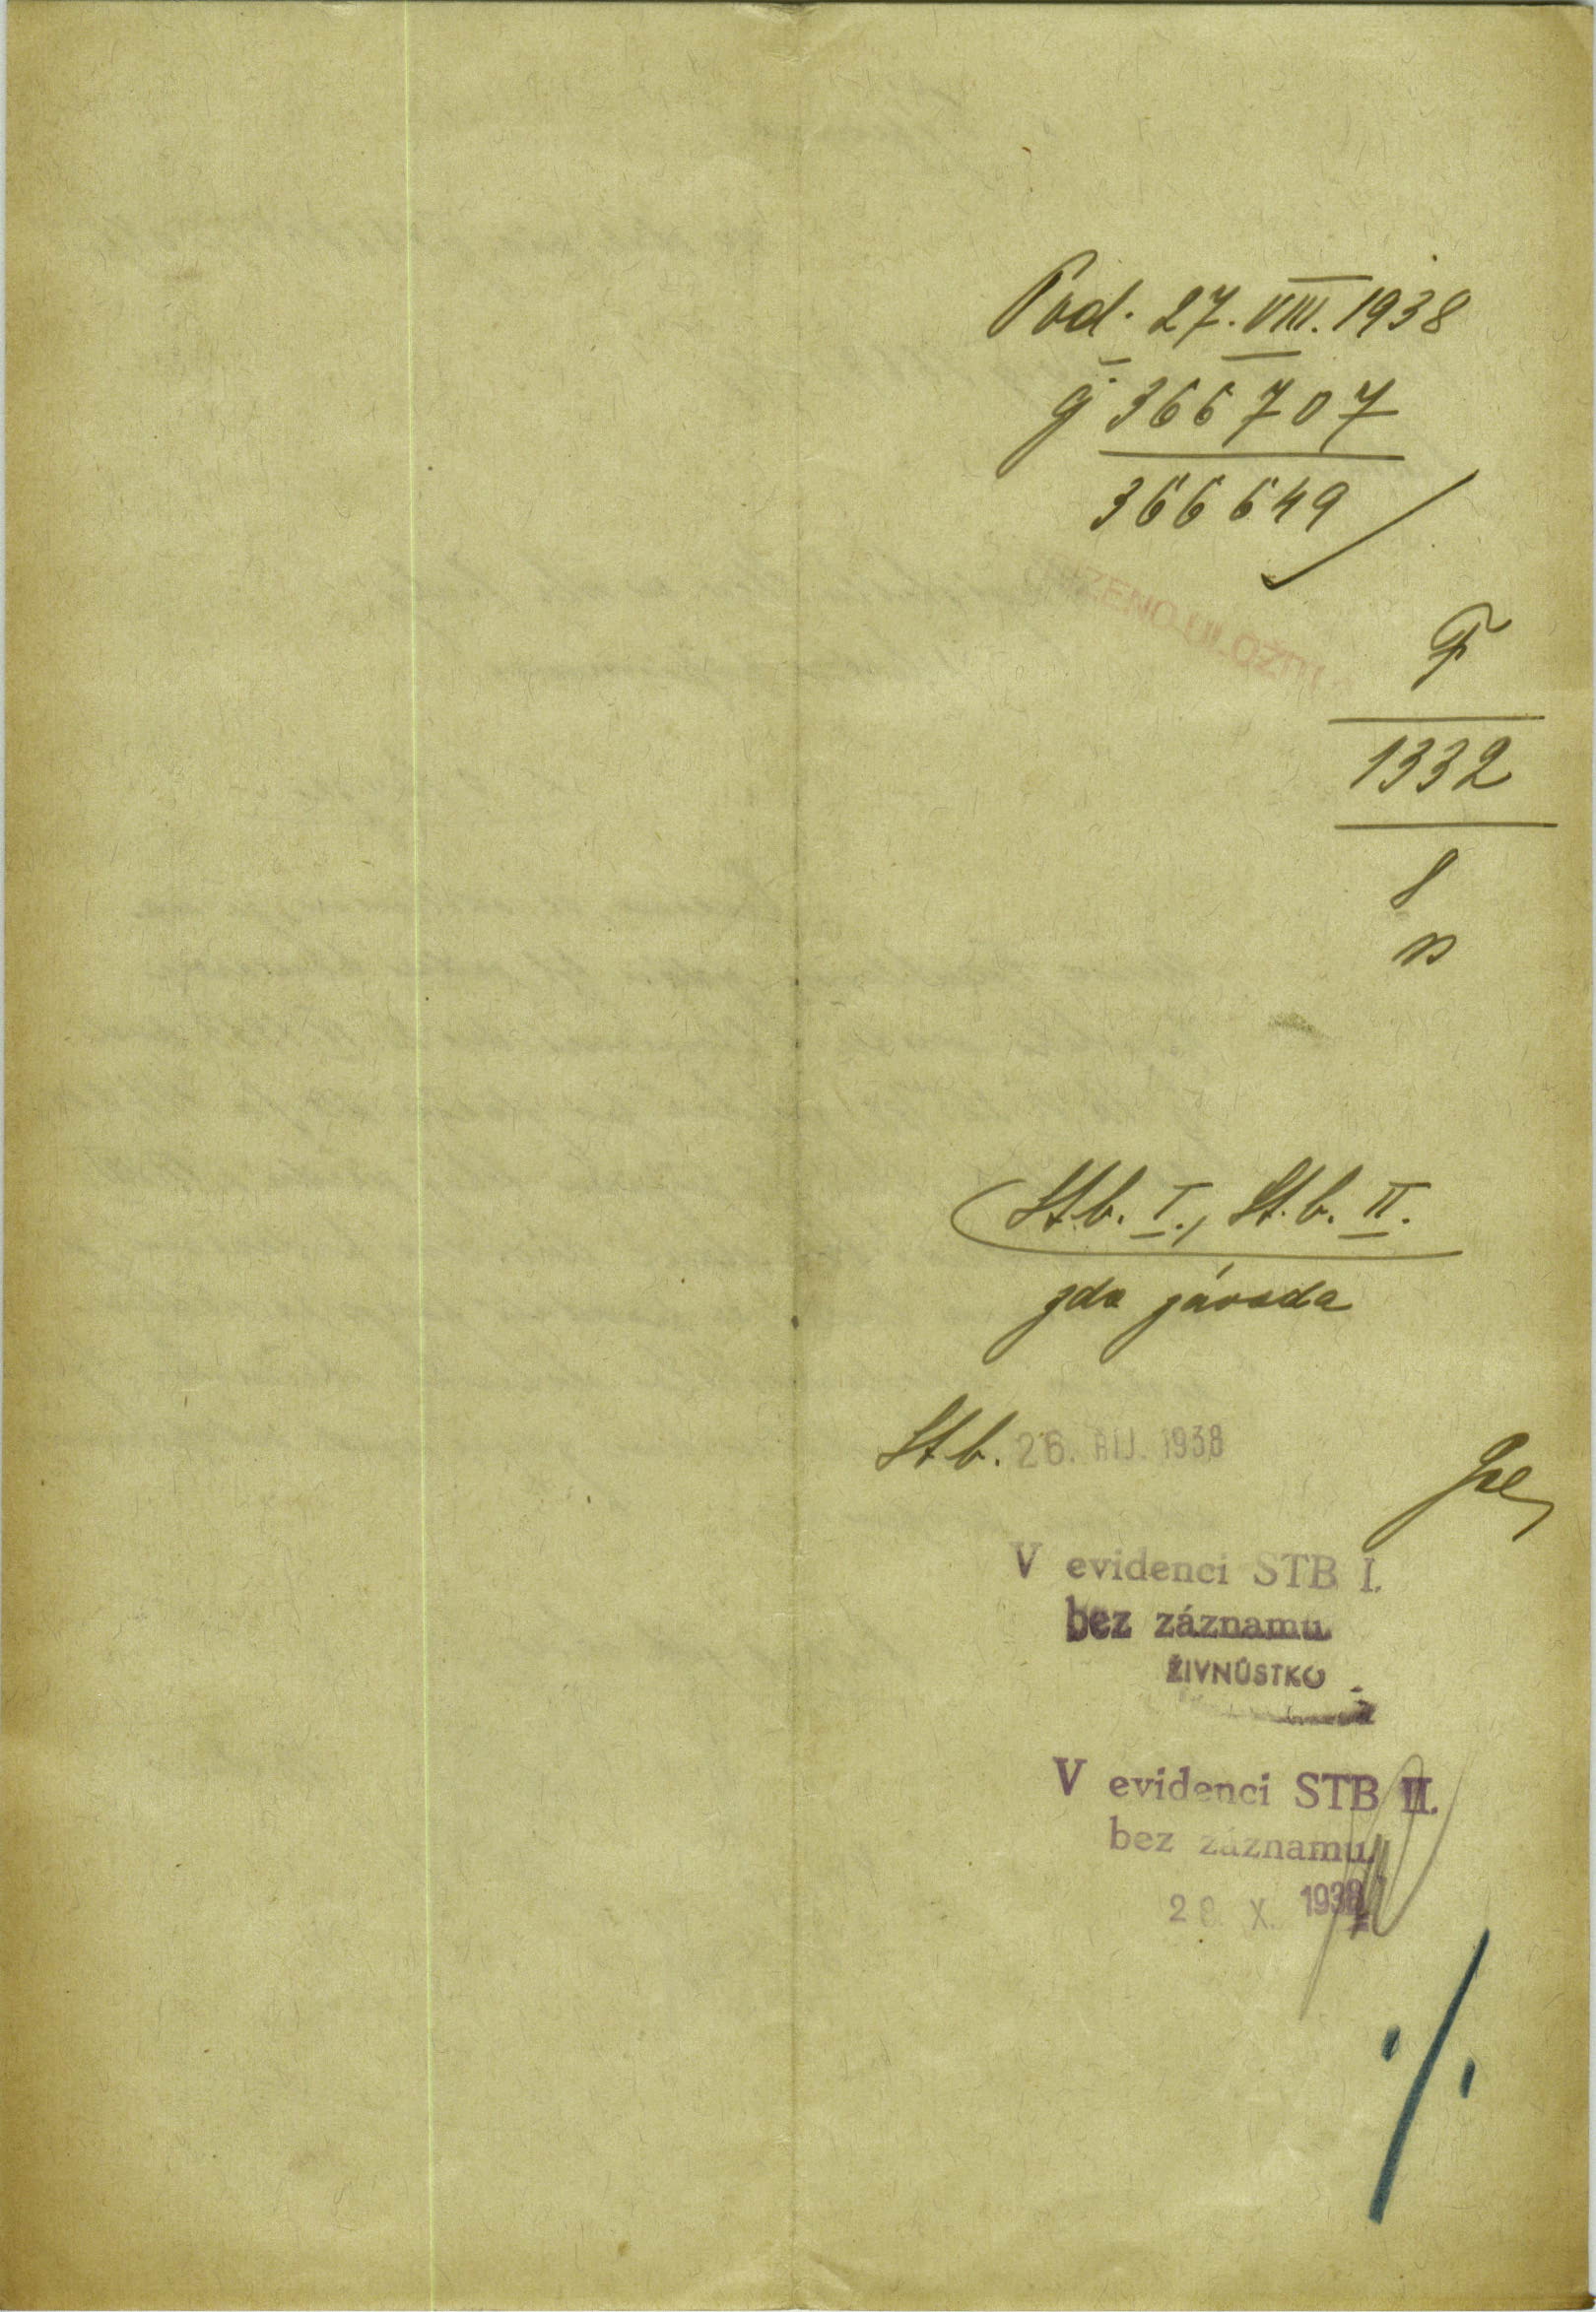 Pod. 27. VIII. 1938
čj 366707
366649
ZENO ULOŽIT
F
1332
8
n
St.b. I., St.b. II.
zda závada
St b. 26. ŘÍJ. 1938
V evidenci STB I.
bez záznamu.
ŽIVNŮSTKO
V evidenci STB II.
bez záznamu.
28. X. 1938
·/·